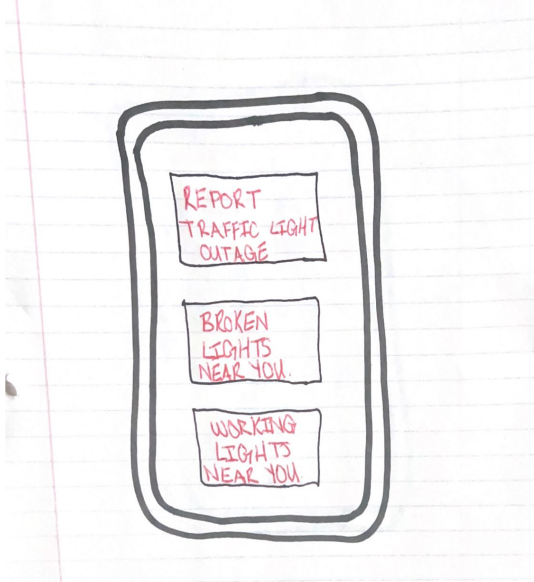 REPORT
TRAFFIC LIGHT
OUTAGE
BROKEN
LIGHTS
NEAR YOU.
WORKING
LIGHTS
NEAR YOU